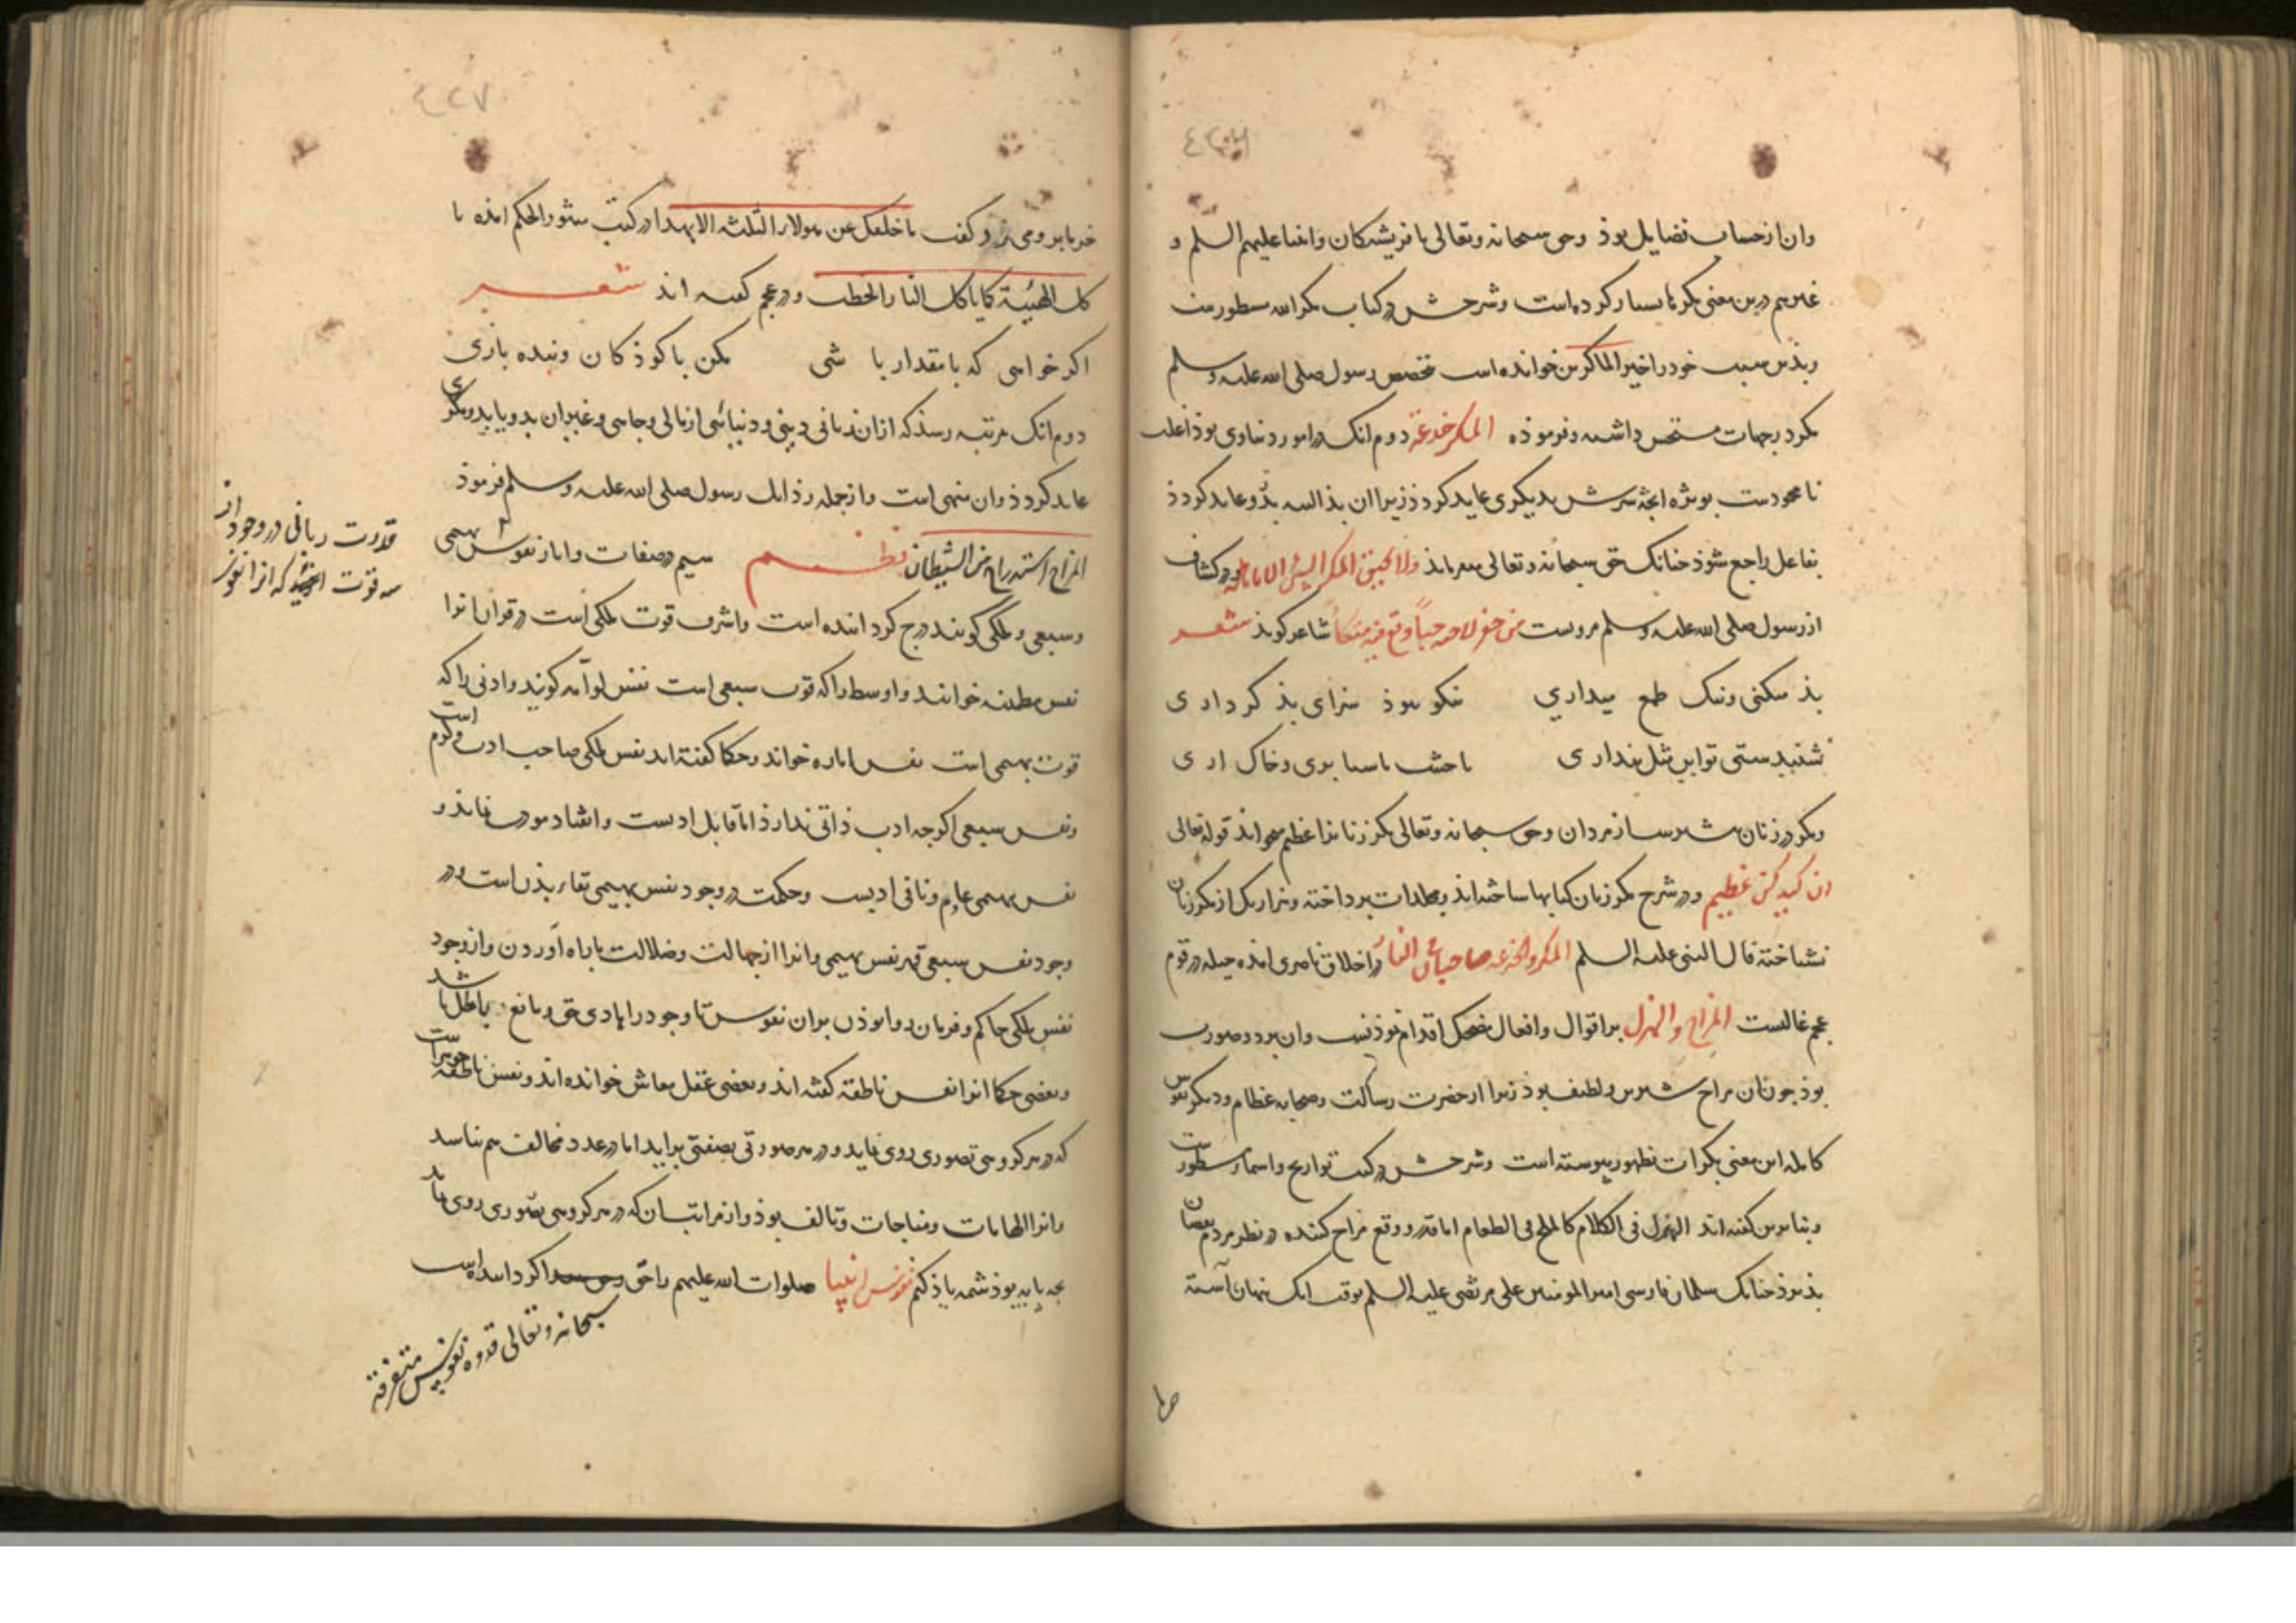 وان از حساب فضایل بوذ وحق سبحانه وتعالی با فریشتکان وانبیا علیهم السلم و
غیرهم درین معنی مکرها بسیار کرده است وشرحش در کتاب مکرالله مسطور
وبذین سبب خود را خیر الماکرین خوانده است مخصص رسول صلی الله علیه وسلم
مکر در جهات مستحسن داشته وفرموده المکر خدعة دوم انک در امور دنیاوی بوذ اغلب
نامحمودست بویژه انچه شرش بدیکری عاید کردذ زیرا ان بذ البته بذو عاید کردذ
بفاعل راجع شوذ چنانک حق سبحانه وتعالی میفرماید ولا یحیق المکر السیئ الا باهله ودر کشاف
از رسول صلی الله علیه وسلم مرویست من حفر لاخیه جبا وقع فیه منکبا شاعر کوید شعر
بذ میکنی ونیک طمع میداری نیکو نبوذ سزای بذ کرداری
نشنیدستی تو این مثل پنداری
ومکر در زنان بیشترست از مردان وحق سبحانه وتعالی مکر زنانرا عظیم میخواند قوله تعالی
ان کیدکن عظیم ودر شرح مکر زنان کتابها ساخته اند ومجلدات پرداخته وهزار یک از مکر زنان
نشناخته قال النبی علیه السلم المکر والخدعه صاحباهما فی النار در اخلاق ناصری امده حیله در قوم
عجم غالبست المزاح والهزل بر اقوال وافعال مضحک اقدام نموذنست وان بر دو صورت
بوذ چون ان مزاح شیرین ولطیف بوذ زیرا از حضرت رسالت وصحابه عظام ودیکر نفوس
کامله این معنی بکرات بظهور پیوسته است وشرحش در کتب تواریخ واسمار مسطورست
وبنابرین کفته اند الهزل فی الکلام کالملح فی الطعام اما قدر ووقع مزاح کننده در نظر مردم نقصان
پذیرذ چنانک سلمان فارسی امیر المومنین علی مرتضی علیه السلم بوقت انک پنهان آهسته
خرما برو می زد وکفت ما خلفک عن مولاء الثلثه الا هذا در کتب منثور الحکم امده
کل الهیبة کما یاکل النار الحطب ودر عجم کفته اند شعر
اکر خواهی که با مقدار باشی مکن با کوذکان وبنده بازی
دوم انک مرتبه رسذ که از ان زیانی دینی ودنیائی از مالی وجاهی وغیر ان بدو یا بدیکری
عاید کردذ وان منهی است واز جمله رذایل رسول صلی الله علیه وسلم فرموذ
المزاح استدراج من الشیطان نظم سیم در صفات واما نفوس بهیمی
وسبعی وملکی کویند درج کردانیده است واشرف قوت ملکی است در قران انرا
نفس مطمئنه خوانند واوسط را که قوت سبعی است نفس لوامه کویند وادنی را که
قوت بهیمی است نفس اماره خواند وحکما کفته اند نفس ملکی صاحب ادب وکرم است
ونفس سبعی اکرچه ادب ذاتی ندارذ اما قابل ادبست وانقیاد
نفس بهیمی عادم ونافی ادبست وحکمت در وجود نفس بهیمی بقاء بذن است ودر
وجود نفس سبعی قهر نفس بهیمی وانرا از جهالت وضلالت باراه آوردن واز وجود
نفس ملکی حاکم وفرمان روا بوذن بر ان نفوس تا وجود را هادی حق ومانع باطل باشد
وبعضی حکما انرا نفس ناطقه کفته اند وبعضی عقل معاش خوانده اند ونفس ناطقه جوهریست
که در هر کروهی تصوری روی نماید ودر هر صورتی بصفتی براید اما در عدد مخالف هم نباشد
وانرا الهامات ومناجات وتالف بوذ واز مراتب ان که در هر کروهی تصوری روی نماید
بچه پایه بوذ شمه یاذ کنم نفوس انبیا صلوات الله علیهم را حق کردانیده است
سبحانه وتعالی قدوه نفوس متفرقة
قدرت ربانی در وجود از
سه قوت افرید که انرا نفوس